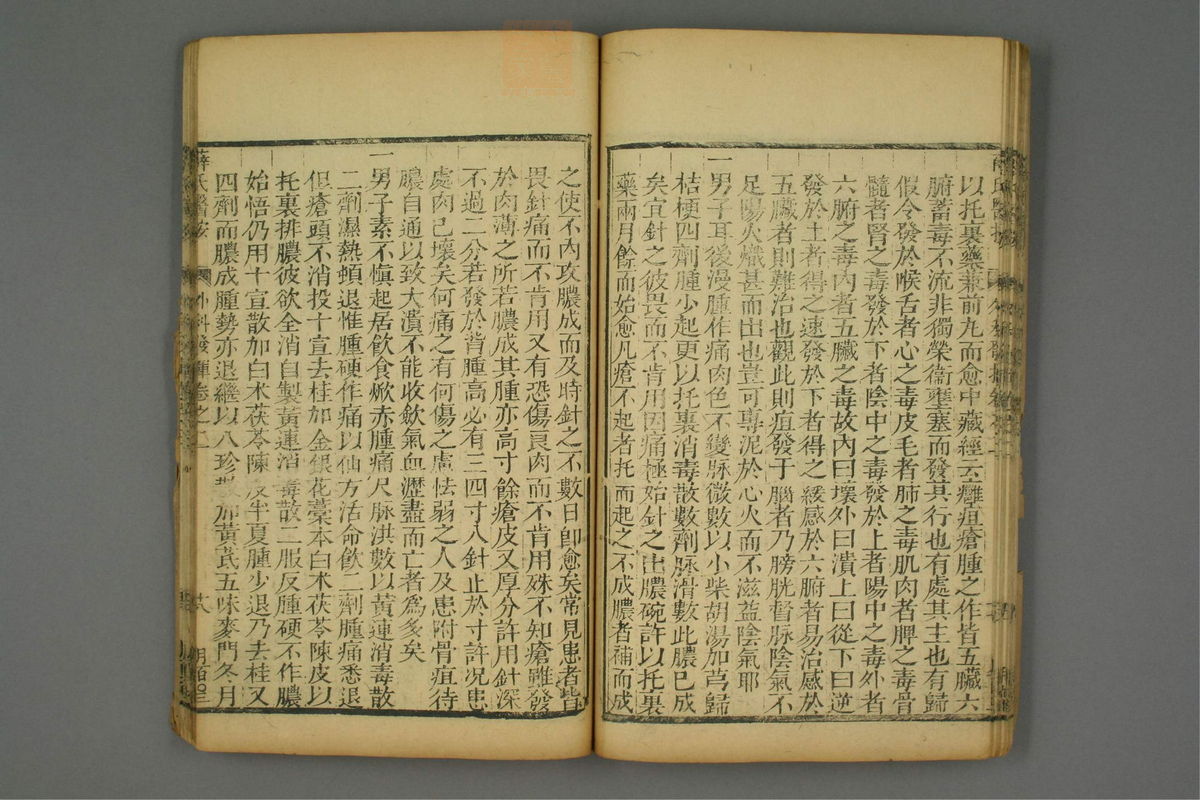 以托裏藥兼前丸而愈中藏經云癰疽瘡腫之作皆五臟六
腑蓄毒不流非獨榮衞壅塞而發其行也有處其主也有歸
假令發於喉舌者心之毒皮毛者肺之毒肌肉者脾之毒骨
髓者腎之毒發於下者陰中之毒發於上者陽中之毒外者
六腑之毒內者五臟之毒故內曰壞外曰潰上曰從下曰逆
發於上者得之速發於下者得之緩感於六腑者易治感於
五臟者則難治也觀此則疽發于腦者乃膀胱督脉陰氣不
足陽火熾甚而出也豈可專泥於心火而不滋益陰氣耶
一男子耳後漫腫作痛肉色不變脉微數以小柴胡湯加芎歸
桔梗四劑腫少起更以托裏消毒散數劑脉滑數此膿已成
矣宜針之彼畏而不肯用因痛極始針之出膿碗許以托裏
藥兩月餘而始愈凡瘡不起者托而起之不成膿者補而成
之使不內攻膿成而及時針之不數日卽愈矣常見患者皆
畏針痛而不肯用又有恐傷良肉而不肯用殊不知瘡雖發
於肉薄之所若膿成其腫亦高寸餘瘡皮又厚分許用針深
不過二分若發於背腫高必有三四寸入針止於寸許况患
處肉已壞矣何痛之有何傷之慮怯弱之人及患附骨疽待
膿自通以致大潰不能收歛氣血瀝盡而亡者爲多矣
一男子素不愼起居飲食焮赤腫痛尺脉洪數以黃連消毒散
二劑濕熱頓退惟腫硬作痛以仙方活命飲二劑腫痛悉退
但瘡頭不消投十宣去桂加金銀花藁本白术茯苓陳皮以
托裏排膿彼欲全消自製黃連消毒散二服反腫硬不作膿
始悟仍用十宣散加白术茯苓陳皮半夏腫少退乃去桂又
四劑而膿成腫勢亦退繼以八珍散加黃芪五味麥門冬月
薛氏醫按 外科發揮卷之二